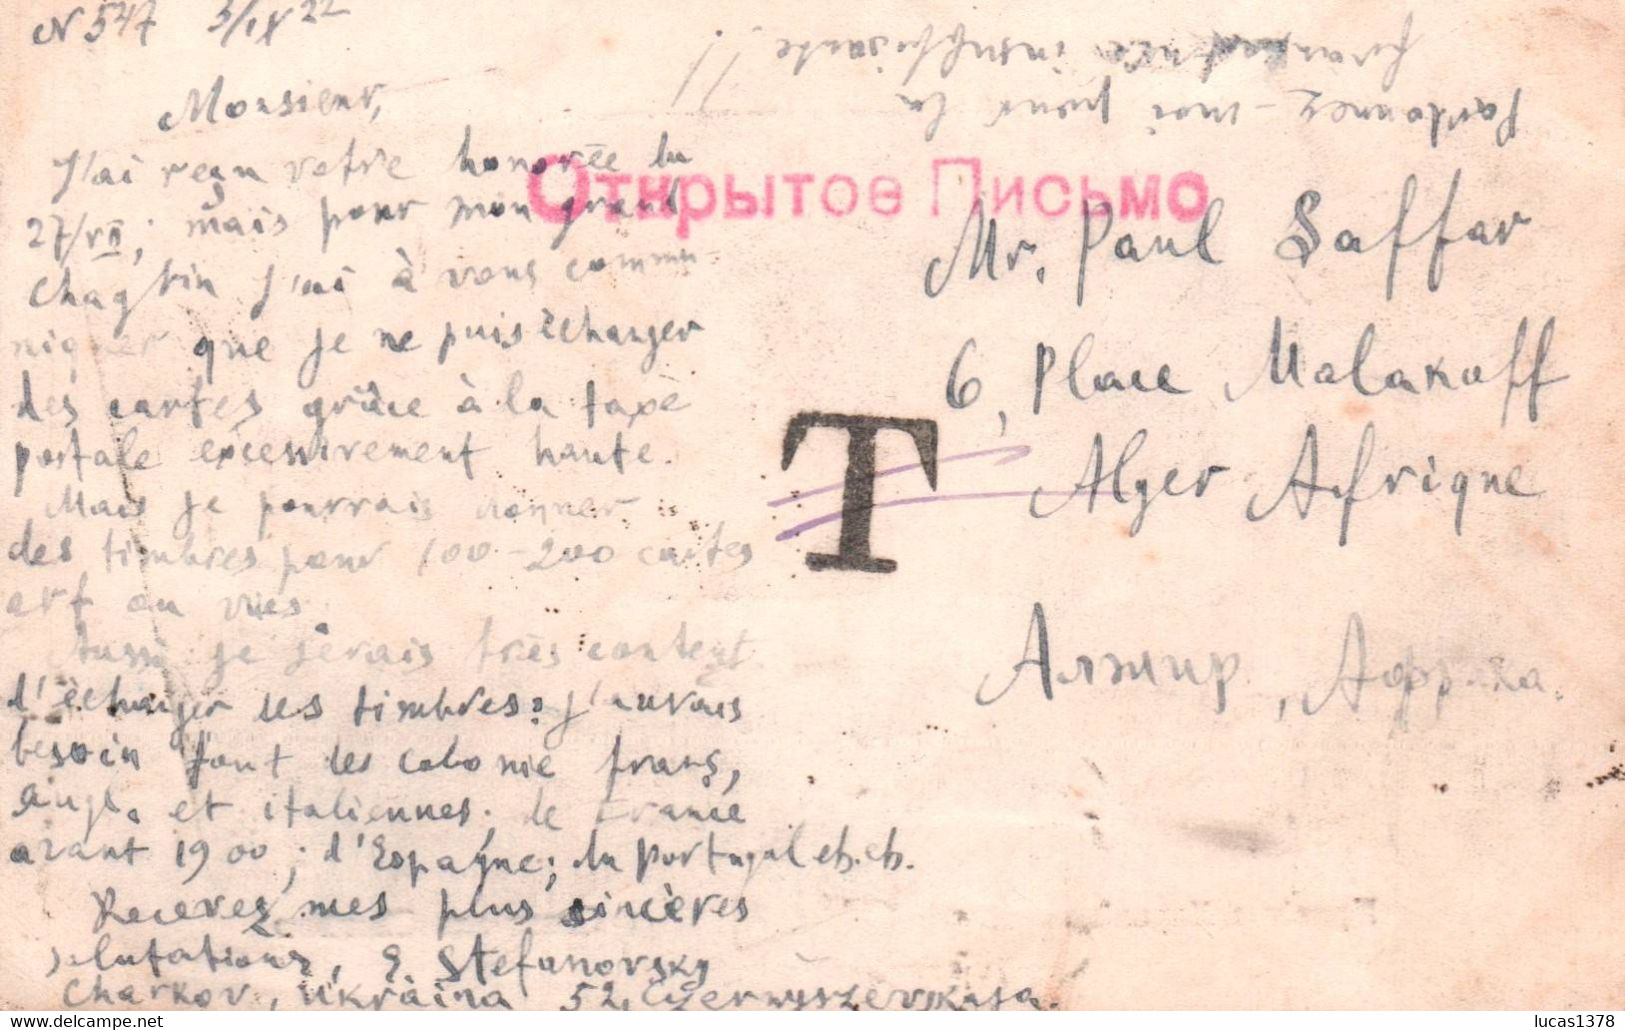 N 547 3/IX 22
Monsieur,
J'ai reçu votre honorée du
27/VII; mais pour mon grand
chagrin j'ai à vous commu-
niquer que je ne puis échanger
des cartes grâce à la taxe
postale excessivement haute.
Mais je pourrais donner
des timbres pour 100-200 cartes
art ou vues.
Aussi je serais très content
d'échanger des timbres: j'aurais
besoin tout des colonie franç,
angl. et italiennes; de France
avant 1900; d'Espagne; du Portugal etc. etc.
Recevez mes plus sincères
salutations, E. Stefanovsky
Charkov, Ukraina 52, Czernyszevskaja.
pardonnez-moi pour la
insuffisante !!
Открытое Письмо
Mr. Paul Saffar
6, Place Malakoff
Alger Afrique
T
Алжир, Африка.
lucas1378